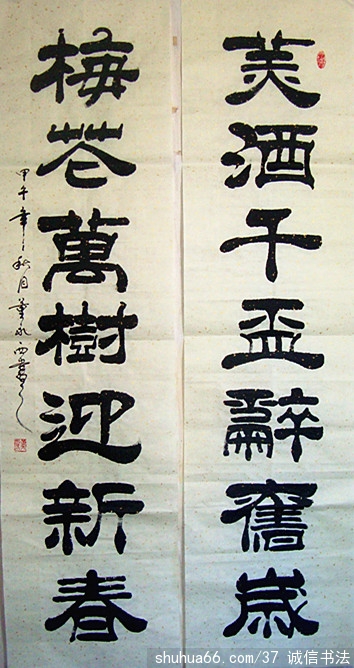 美酒千盃辭舊歲
梅花萬樹迎新春
甲午年秋月董永西書
shuhua66.com/37 诚信书法